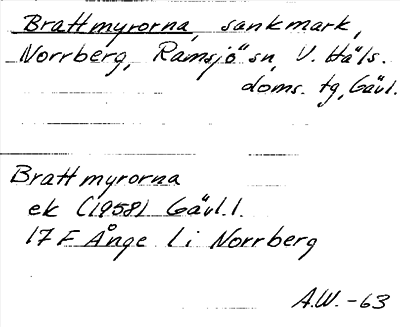 Brattmyrorna, sankmark,
Norrberg, Ramsjö sn, V. Häls.
doms. tg, Gävl.
Brattmyrorna
ek (1958) Gävl.l.
17 F Ånge l i Norrberg
A.W. -63